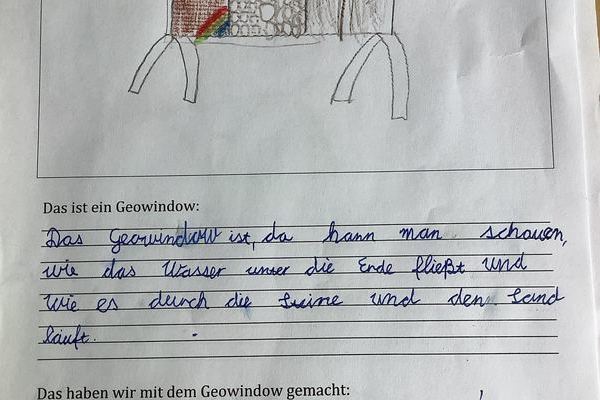 Das ist ein Geowindow:
Das Geowindow ist, da kann man schauen,
wie das Wasser unter die Erde fließt und
wie es durch die Steine und den Sand
läuft.
Das haben wir mit dem Geowindow gemacht: